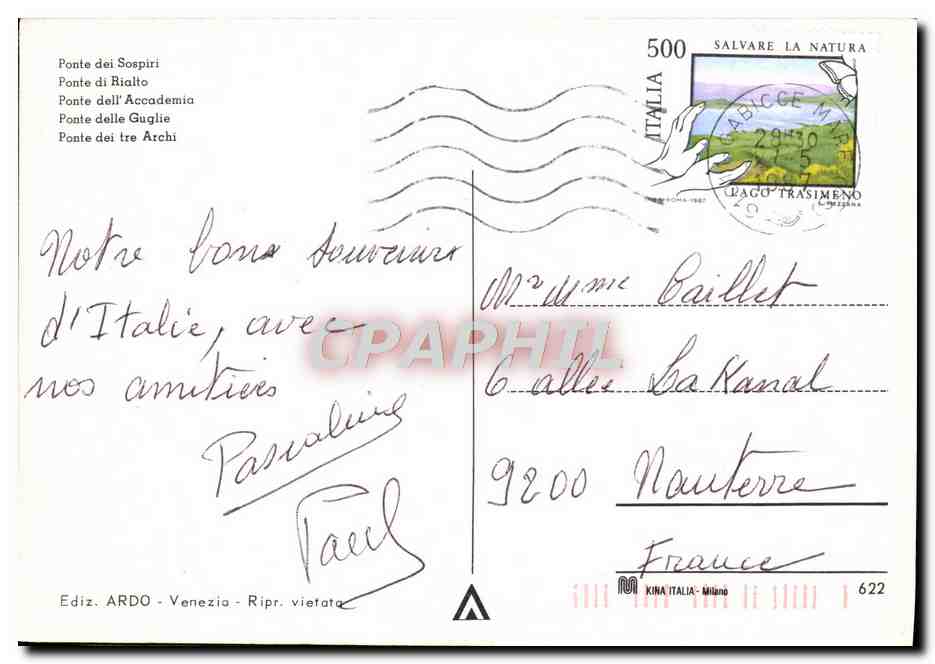 Ponte dei Sospiri
Ponte di Rialto
Ponte dell'Accademia
Ponte delle Guglie
Ponte dei tre Archi
500 SALVARE LA NATURA
ITALIA
GABICCE MARE
29 5
1987
LAGO TRASIMENO
ROMA-1987
Notre bons souvenirs
d'Italie, avec
nos amitiers
Pascaline
Paul
Mr et Mme Caillet
6 allée Lakanal
9200 Nanterre
France
CPAPHIL
Ediz. ARDO - Venezia - Ripr. vietata
KINA ITALIA - Milano
622